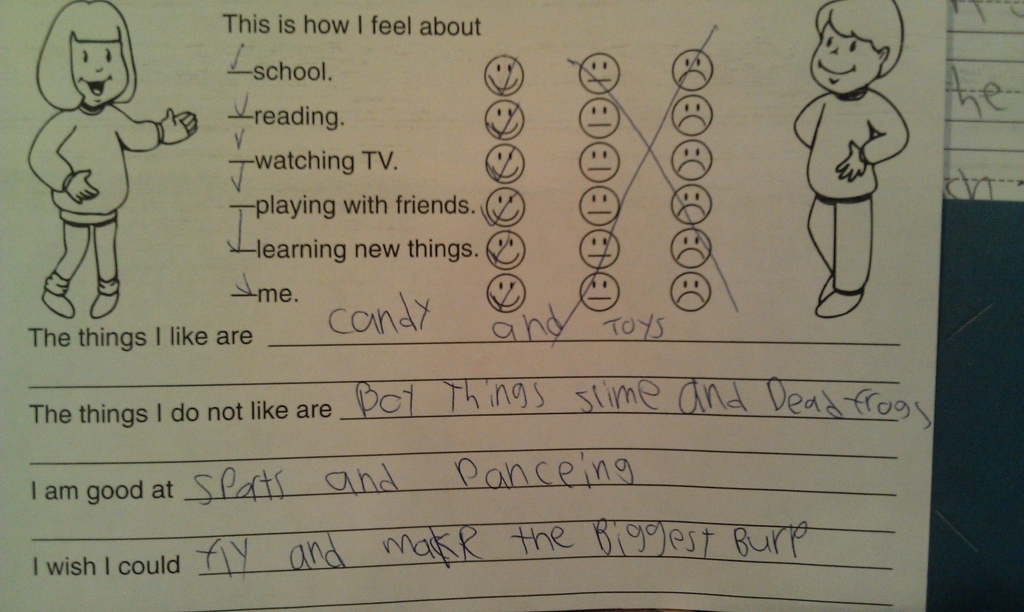 This is how I feel about
school.
reading.
watching TV.
playing with friends.
learning new things.
me.
The things I like are candy and Toys
The things I do not like are Boy Things slime and Dead frogs
I am good at sparts and Danceing
I wish I could fly and make the Biggest Burp
he
ch